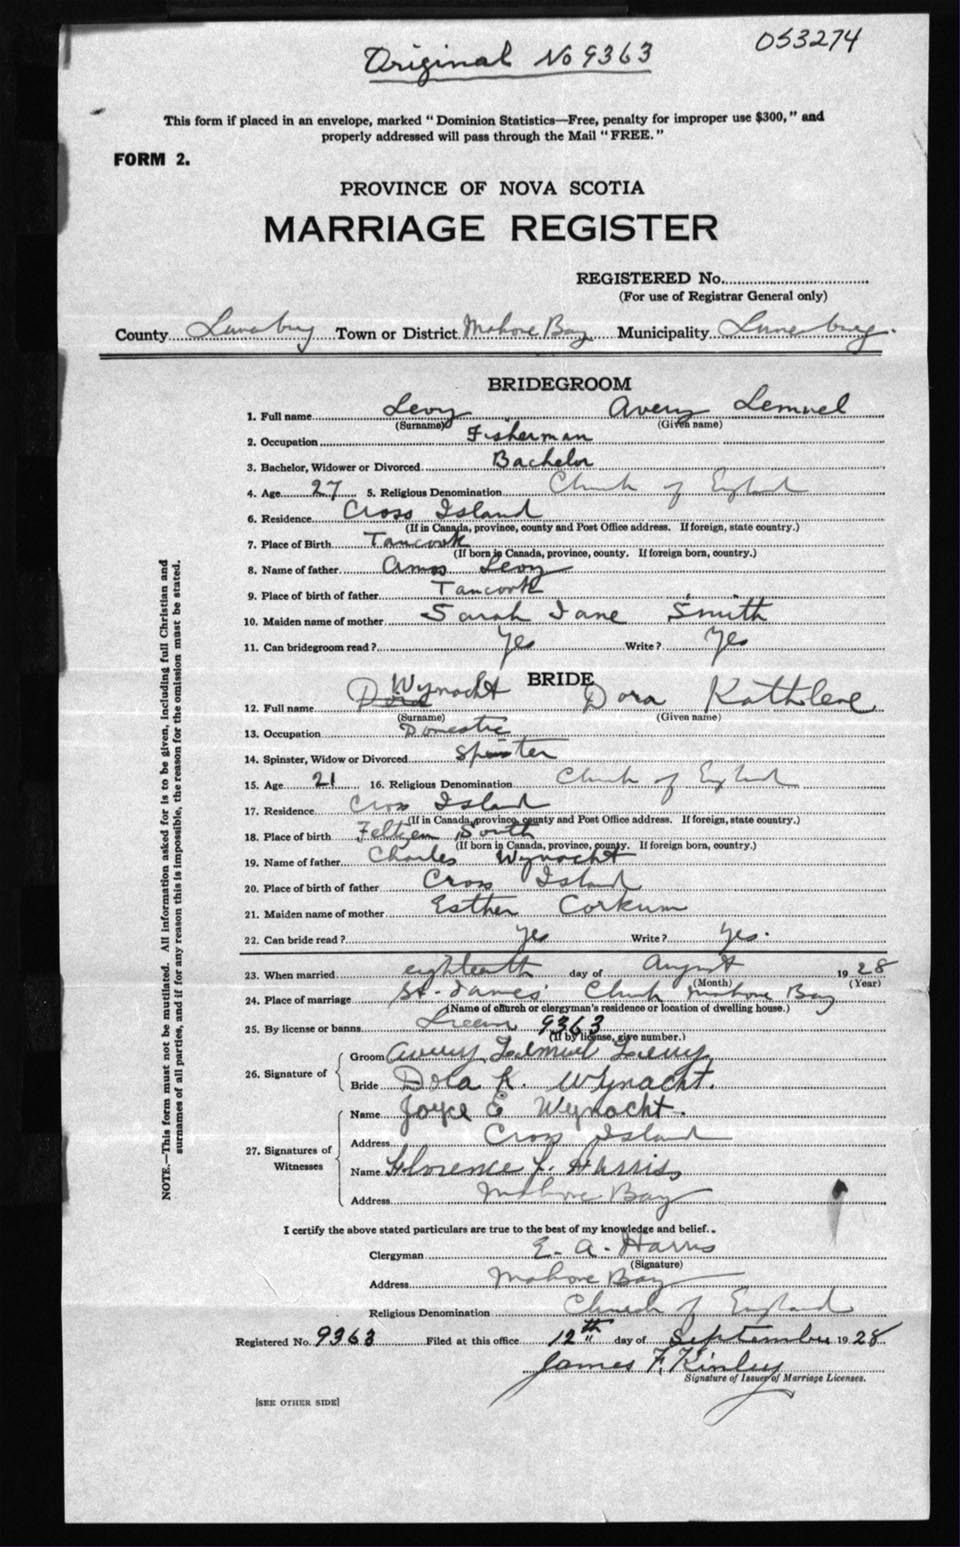 Original No 9363
053274
This form if placed in an envelope, marked "Dominion Statistics—Free, penalty for improper use $300," and
properly addressed will pass through the Mail "FREE."
FORM 2.
PROVINCE OF NOVA SCOTIA
MARRIAGE REGISTER
REGISTERED No.
(For use of Registrar General only)
County Lunenburg Town or District Mahone Bay Municipality Lunenburg.
BRIDEGROOM
1. Full name Levy Avery Lemuel
(Surname) (Given name)
2. Occupation Fisherman
3. Bachelor, Widower or Divorced Bachelor
4. Age 27 5. Religious Denomination Church of England
6. Residence Cross Island
(If in Canada, province, county and Post Office address. If foreign, state country.)
7. Place of Birth Tancook
(If born in Canada, province, county. If foreign born, country.)
8. Name of father Amos Levy
9. Place of birth of father Tancook
10. Maiden name of mother Sarah Jane Smith
11. Can bridegroom read? Yes Write? Yes
BRIDE
12. Full name Dora Wynacht Dora Kathlene
(Surname) (Given name)
13. Occupation Domestic
14. Spinster, Widow or Divorced Spinster
15. Age 21 16. Religious Denomination Church of England
17. Residence Cross Island
(If in Canada, province, county and Post Office address. If foreign, state country.)
18. Place of birth Feltzen South
(If born in Canada, province, county. If foreign born, country.)
19. Name of father Charles Wynacht
20. Place of birth of father Cross Island
21. Maiden name of mother Esther Corkum
22. Can bride read? Yes Write? Yes.
23. When married eighteenth day of August 1928
(Month) (Year)
24. Place of marriage St. James' Church Mahone Bay
(Name of church or clergyman's residence or location of dwelling house.)
25. By license or banns License 9363
(If by license, give number.)
26. Signature of
Groom Avery Lemuel Levy
Bride Dora K. Wynacht.
27. Signatures of Witnesses
Name Joyce E Wynacht.
Address Cross Island
Name Florence L. Harris
Address Mahone Bay
I certify the above stated particulars are true to the best of my knowledge and belief.
Clergyman E. A. Harris
(Signature)
Address Mahone Bay
Religious Denomination Church of England
Registered No. 9363 Filed at this office 12th day of September 1928
James F. Kinley
Signature of Issuer of Marriage Licenses.
[SEE OTHER SIDE]
NOTE.—This form must not be mutilated. All information asked for is to be given, including full Christian and
surnames of all parties, and if for any reason this is impossible, the reason for the omission must be stated.